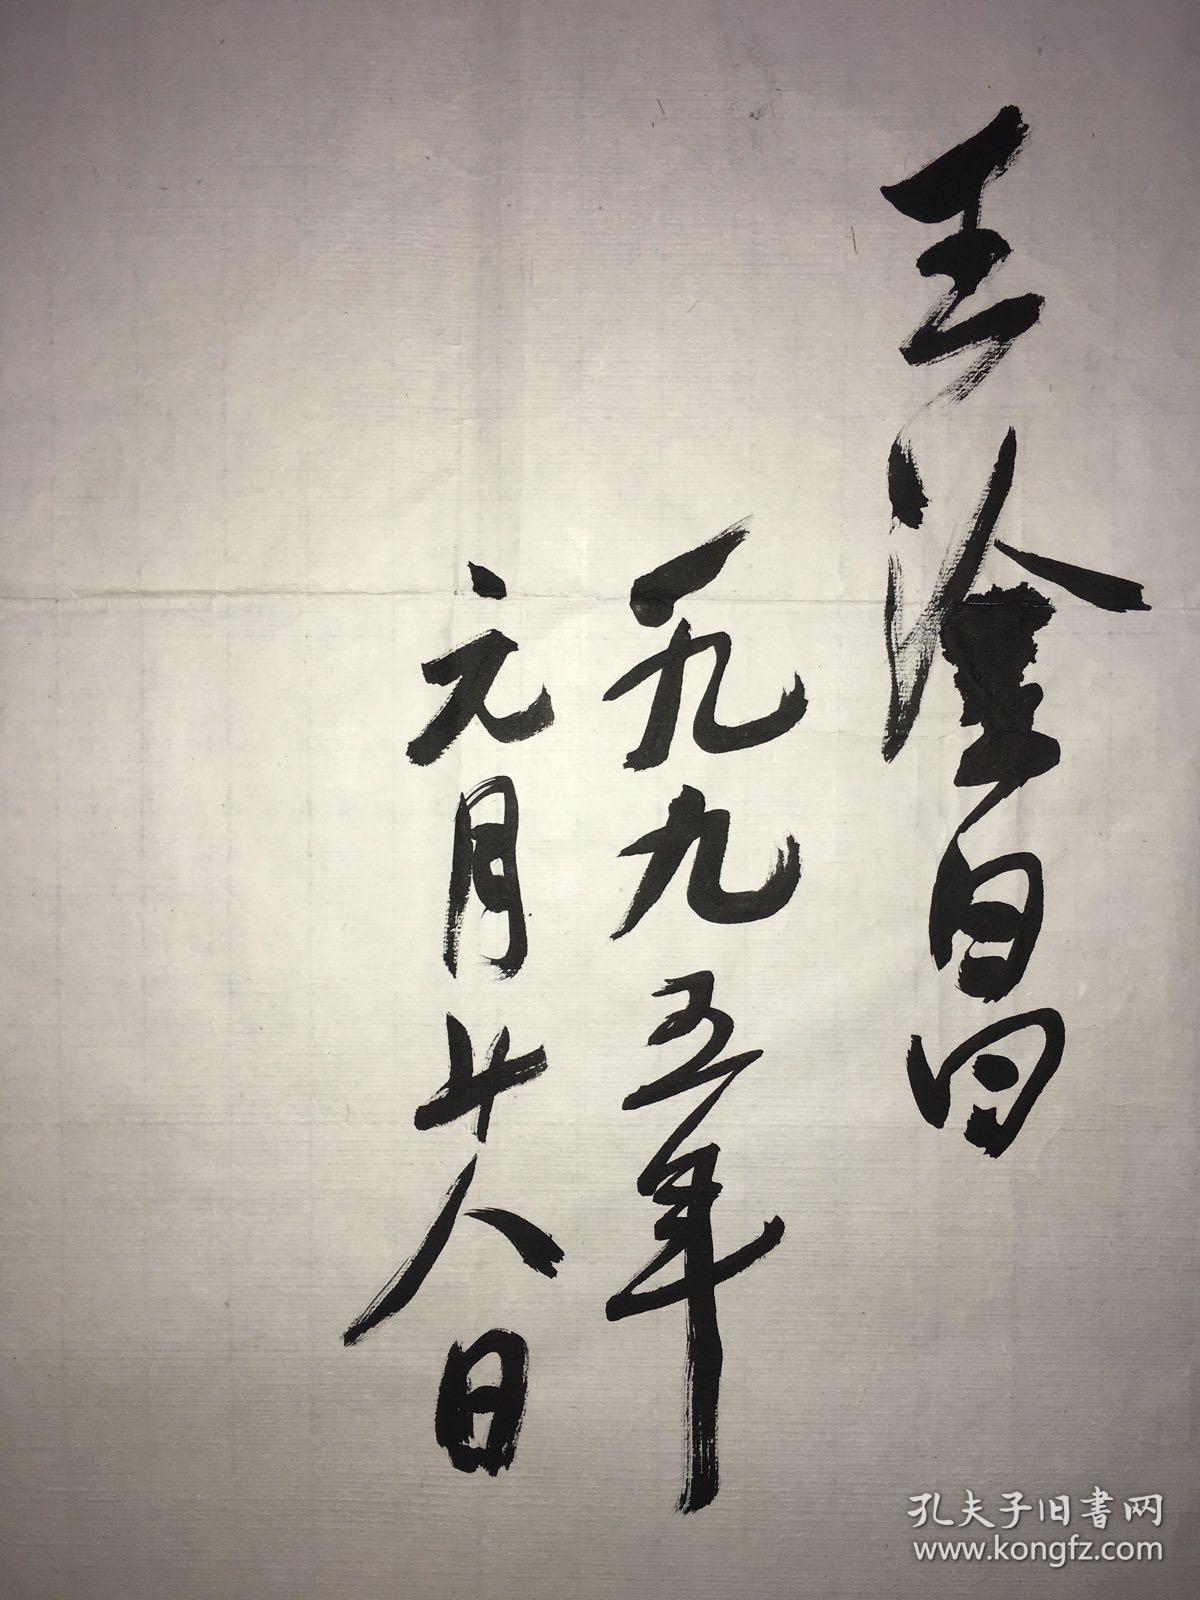 王淦昌
一九九五年
元月廿八日
孔夫子旧书网
www.kongfz.com